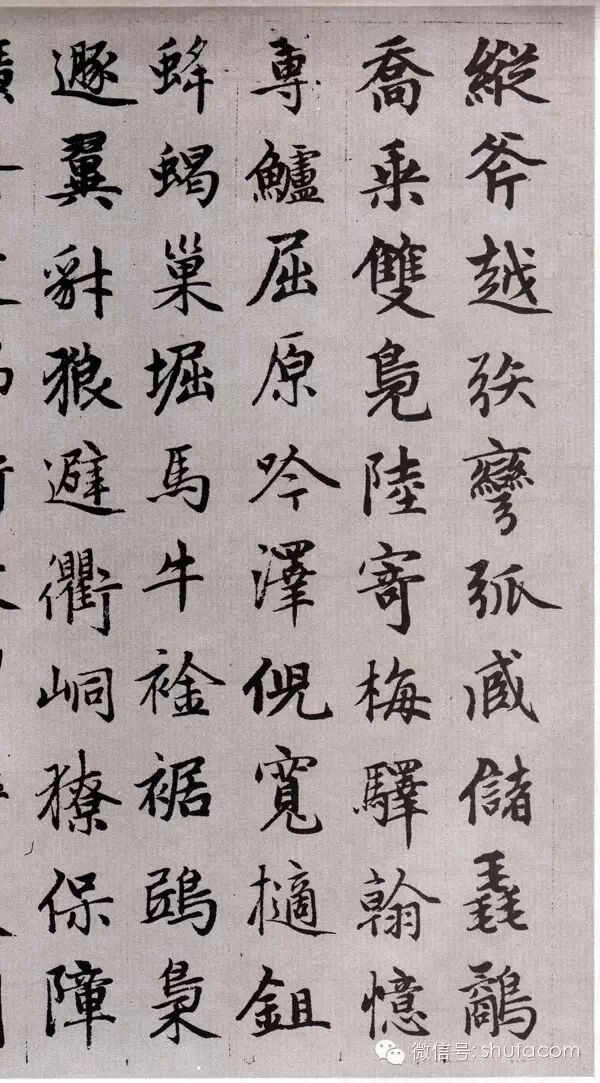 縱斧越㢡彎弧臧儲毳鷸
喬乘雙鳧陸寄梅驛翰憶
專鱸屈原吟澤倪寬擿鉏
蜂蝎巢堀馬牛裣裾鴟梟
遯翼豺狼避衢峒獠保障
微信号: shufacom